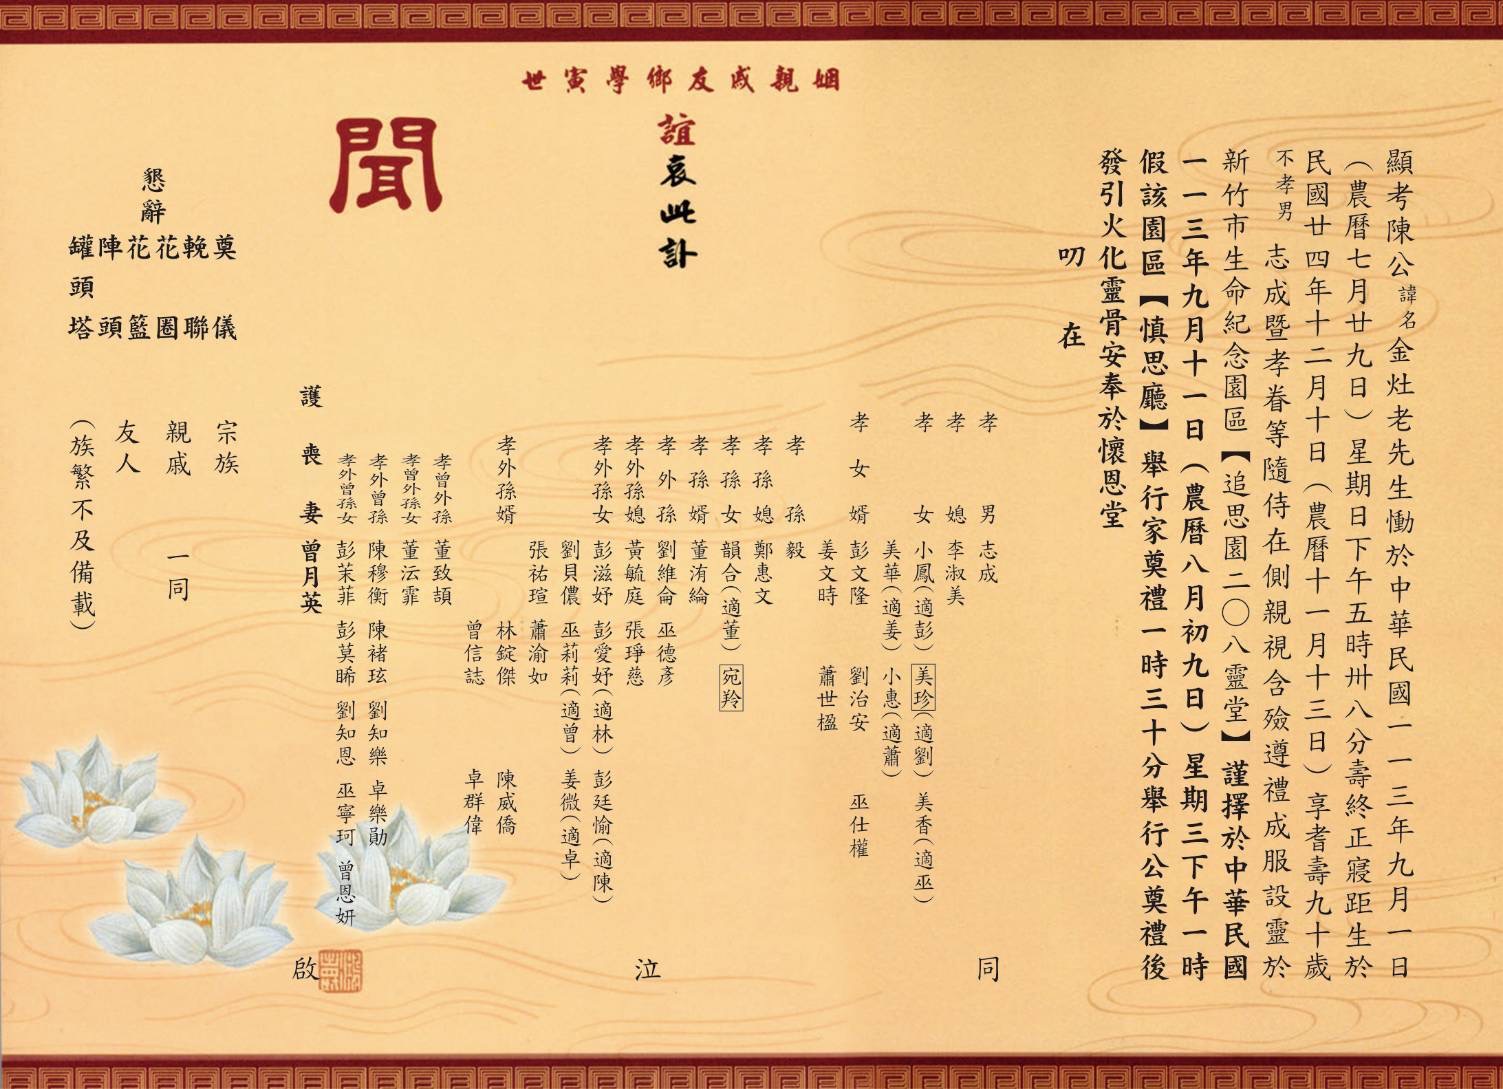 顯考陳公諱名金灶老先生慟於中華民國一一三年九月一日
（農曆七月廿九日）星期日下午五時卅八分壽終正寢距生於
民國廿四年十二月十日（農曆十一月十三日）享耆壽九十歲
不孝男 志成暨孝眷等隨侍在側親視含殮遵禮成服設靈於
新竹市生命紀念園區【追思園二〇八靈堂】謹擇於中華民國
一一三年九月十一日（農曆八月初九日）星期三下午一時
假該園區【慎思廳】舉行家奠禮一時三十分舉行公奠禮後
發引火化靈骨安奉於懷恩堂
叨 在
姻親戚友鄉學寅世
誼哀此訃
聞
孝男 志成
孝媳 李淑美
孝女 小鳳（適彭） 美珍（適劉） 美香（適巫）
美華（適姜） 小惠（適蕭）
孝女婿 彭文隆 劉治安 巫仕權
姜文時 蕭世楹
孝孫 毅
孝孫媳 鄭惠文
孝孫女 韻合（適董） 宛羚
孝孫婿 董洧綸
孝外孫 劉維侖 巫德彥
孝外孫媳 黃毓庭 張琤慈
孝外孫女 彭滋妤 彭愛妤（適林） 彭廷愉（適陳）
劉貝儂 巫莉莉（適曾） 姜微（適卓）
張祐瑄 蕭渝如
孝外孫婿 林錠傑 陳威僑
曾信誌 卓群偉
孝曾外孫 董致頡
孝曾外孫女 董沄霏
孝外曾孫 陳穆衡 陳褚玹 劉知樂 卓樂勛
孝外曾孫女 彭茉菲 彭莫晞 劉知恩 巫寧珂 曾恩妍
護喪妻 曾月英
同
泣
啟
懇辭
奠儀
輓聯
花圈
花籃
陣頭
罐頭塔
宗族
親戚 一同
友人
（族繁不及備載）